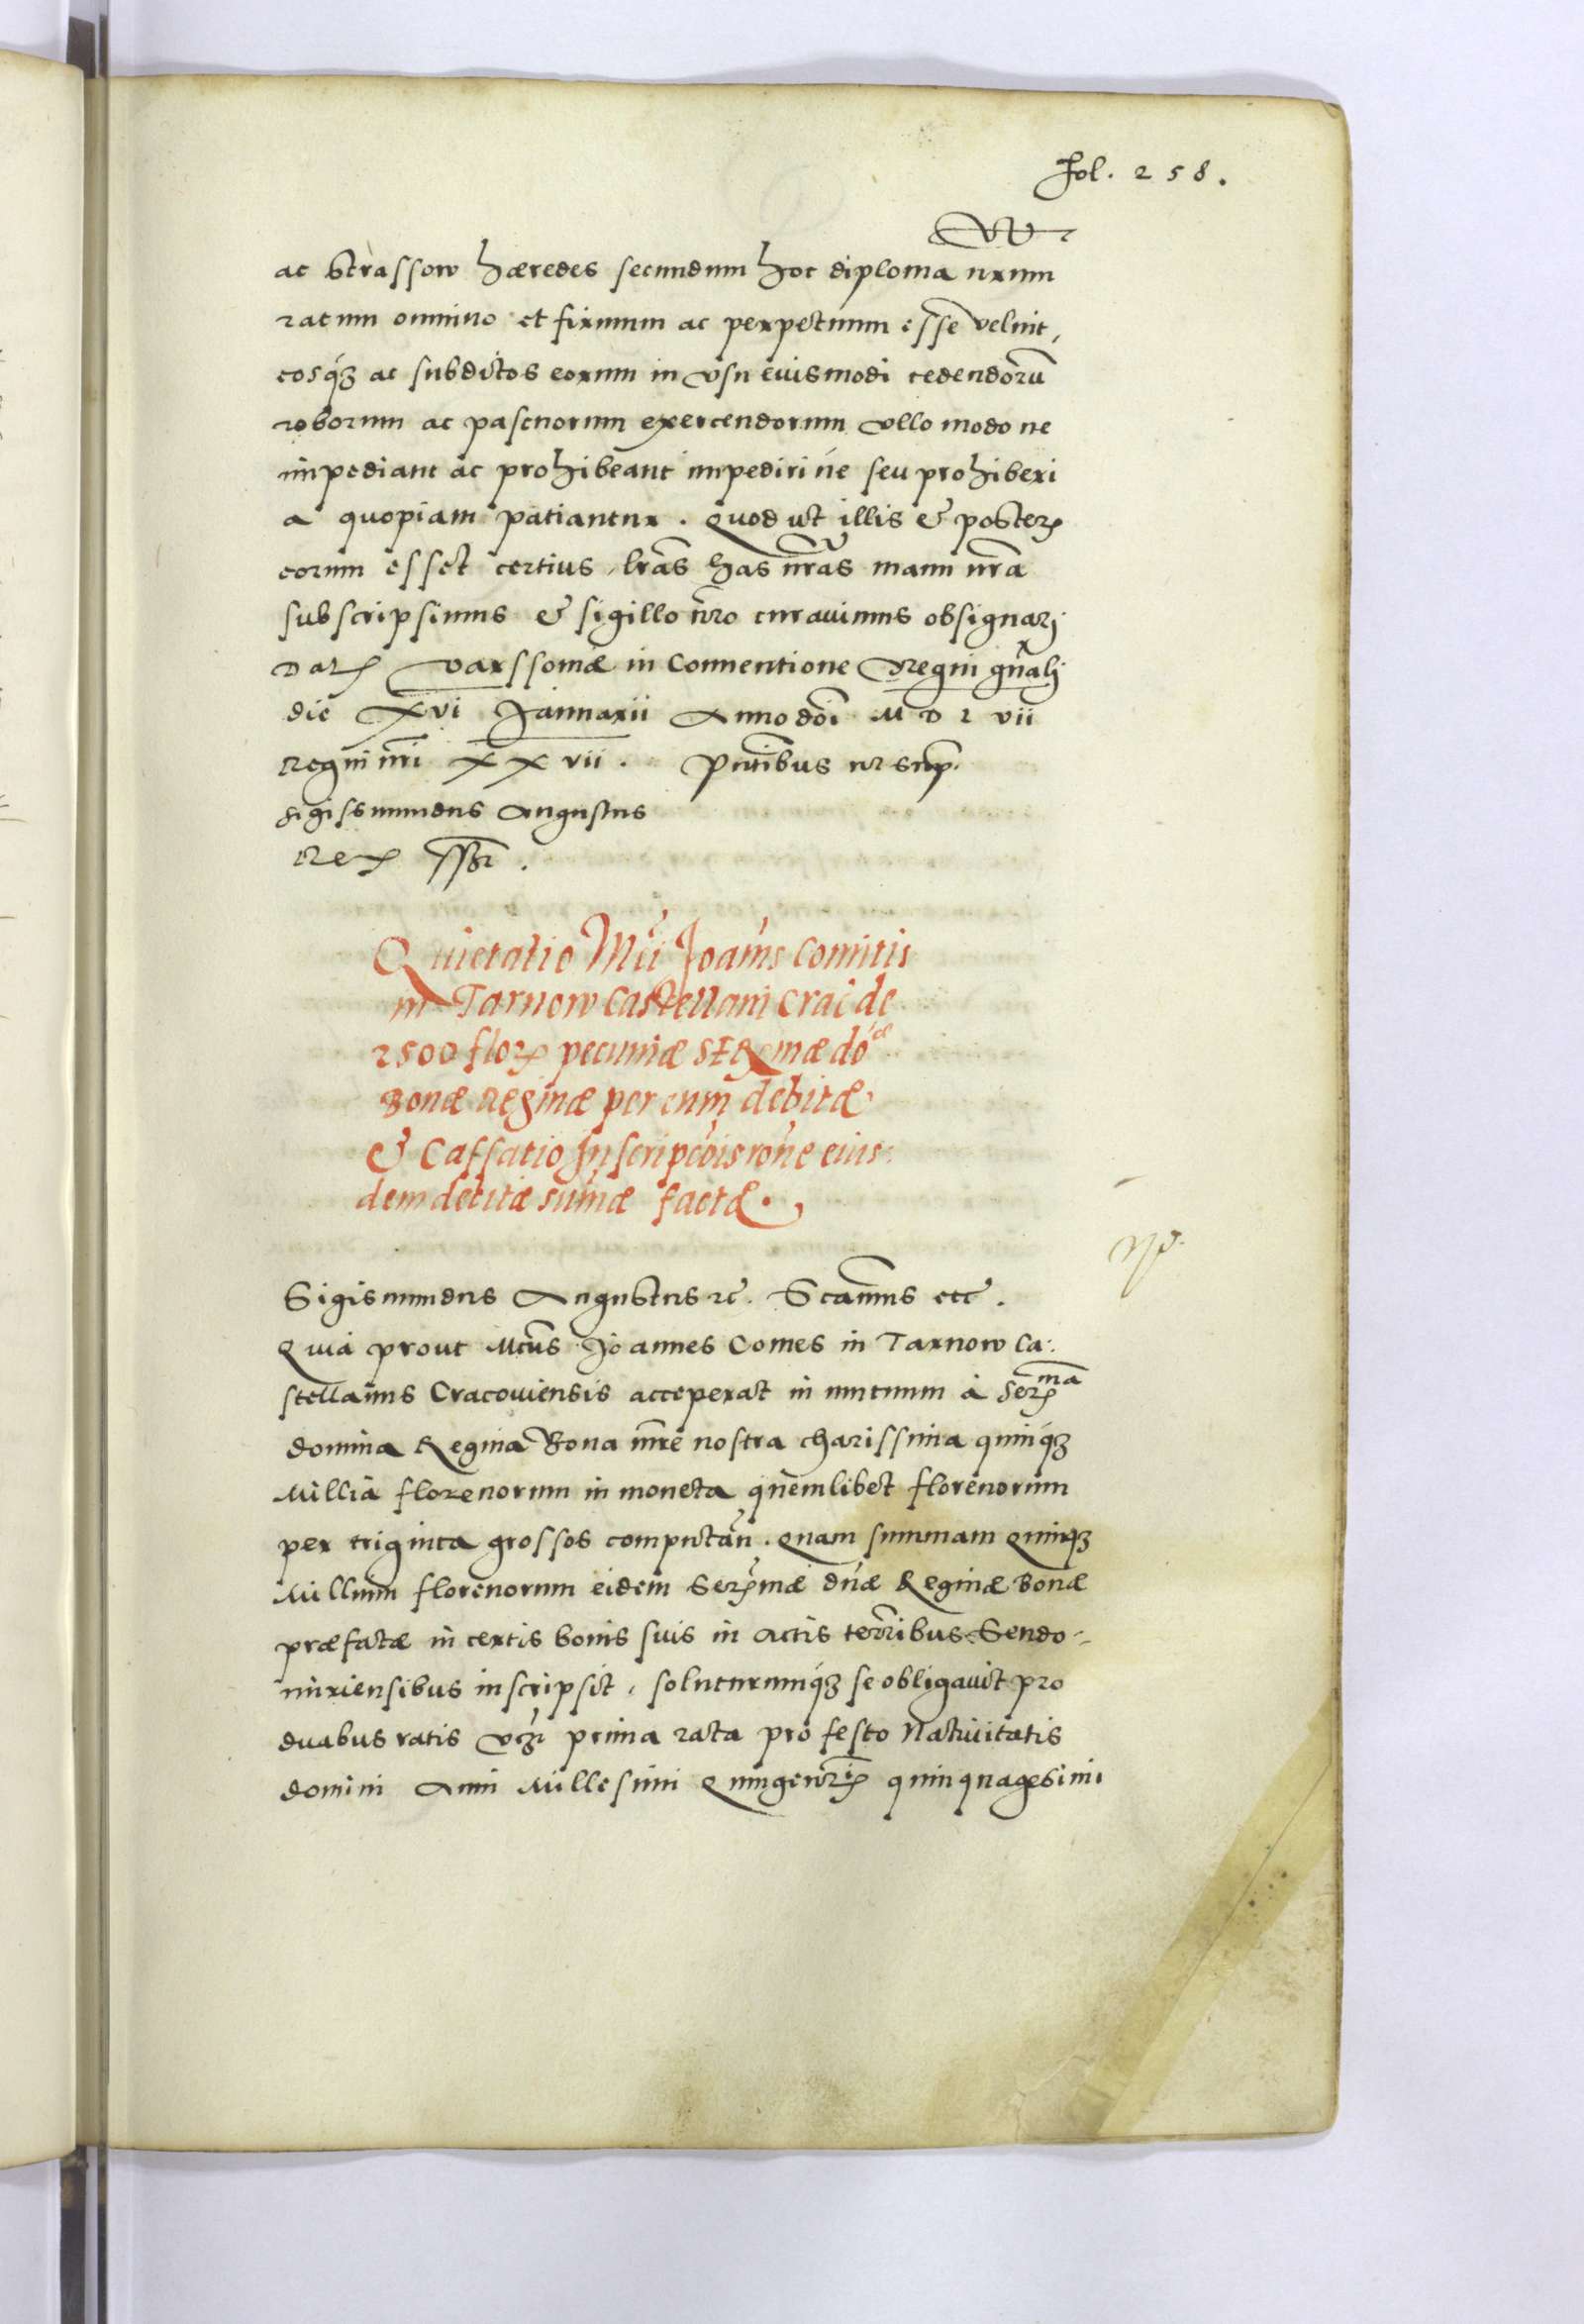 Fol. 258.
ac Strassow hæredes secundum hoc diploma nrum
ratum omnino et firmum ac perpetuum esse velint,
eosq́ꝫ ac subditos eorum in vsu eiusmodi cedendorũ
roborum ac pascuorum exercendorum vllo modo ne
impediant ac prohibeant impediri ne seu prohiberi
a quopiam patiantur. Quod ut illis & posterꝭ
eorum esset certius, lrãs has nrãs manu nrã
subscripsimus & sigillo nr̃o curauimus obsignarj
Datꝭ Varssouiæ in Conuentione Regni gñalj
die xvi Januarii Anno doĩ M D L vii
Regni nri xx vii. Pntibus ut sup.
Sigissmundus Augustus
Rex sst.
Quietatio Mci Joanis Comitis
in Tarnow Castellani Crac̃ de
2500 florꝭ pecuniæ SERemæ doæ
Bonæ Reginæ per eum debitæ
& Cassatio Inscripcõis rõne eius:
dem debitæ sum̃æ factæ.
Sigismundus Augustus ꝛc̃. Scanms etc̃.
Quia prout Mcũs Joannes Comes in Tarnow Ca:
stellanus Cracouiensis acceperat in mutuum à Serꝭma
domina Regina Bona mr̃e nostra charissima quinq́ꝫ
Millia florenorum in moneta quemlibet florenorum
per triginta grossos computan̄. Quam summam Quinqꝫ
Millium florenorum eidem Serꝭmæ dnæ Reginæ Bonæ
præfatæ in certis bonis suis in Actis terr̃ibus Sendo:
miriensibus inscripsit, soluturumq́ꝫ se obligauit pro
duabus ratis vꝫ prima rata pro festo Natiuitatis
domini Anni Millesimi Quingentꝭmi quinquagesimi